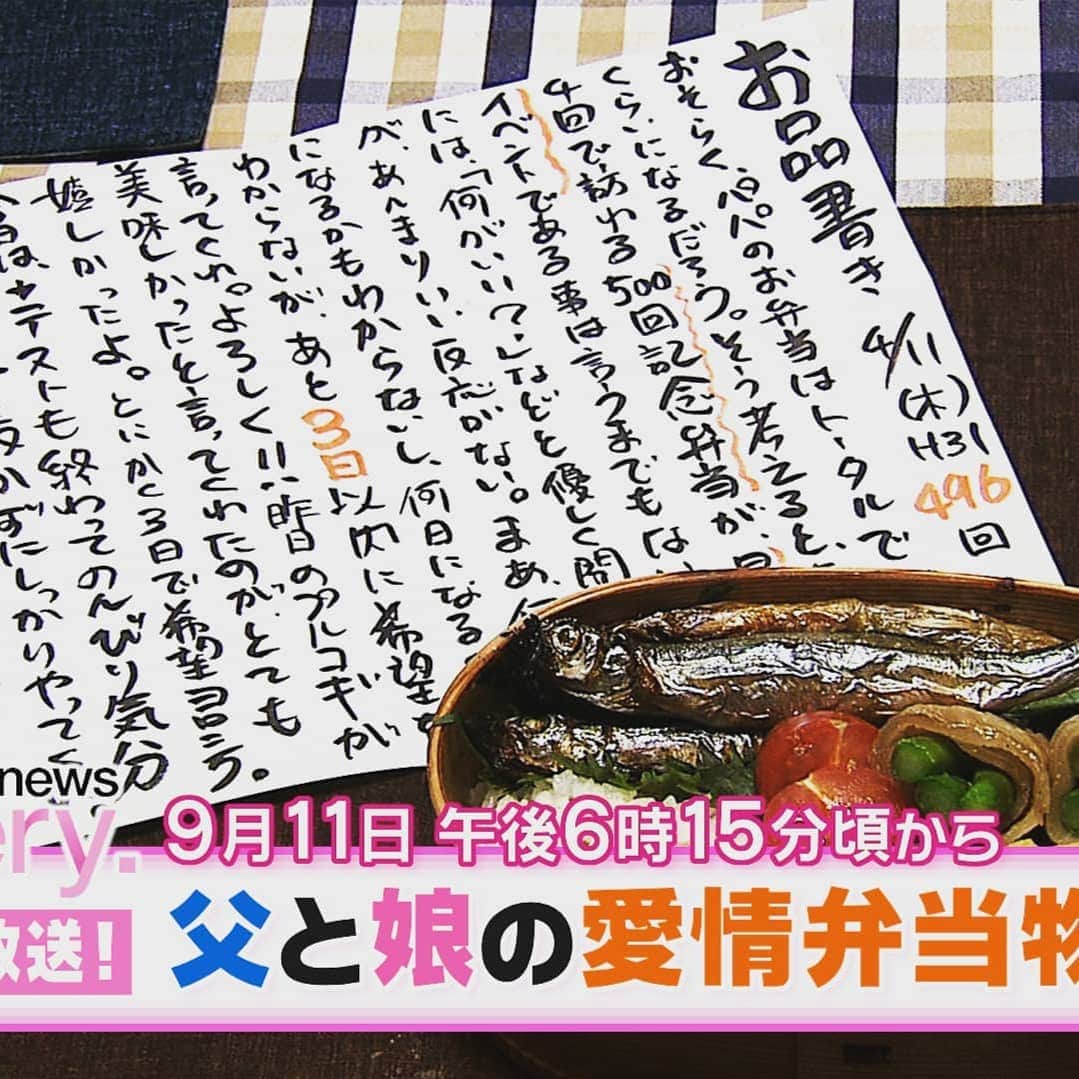 お品書き 4/11(木) H31 496回
おそらく、パパのお弁当はトータルで
くらいになるだろう。そう考えると、
4回で訪れる500回記念弁当が、
イベントである事は言うまでもない
には、「何がいい？」などと優しく問
が、あんまりいい反応がない。まあ、
になるかもわからないし、何日になる
わからないが、あと3日以内に希望を
言ってくれ。よろしく!!昨日のプルコギが
美味しかったと言ってくれたのが、とても
嬉しかったよ。とにかく3日で希望ヨロシク。
は、テストも終わってのんびり気分
ずにしっかりやってく
news
ery.
9月11日 午後6時15分頃から
放送!
父と娘の愛情弁当物